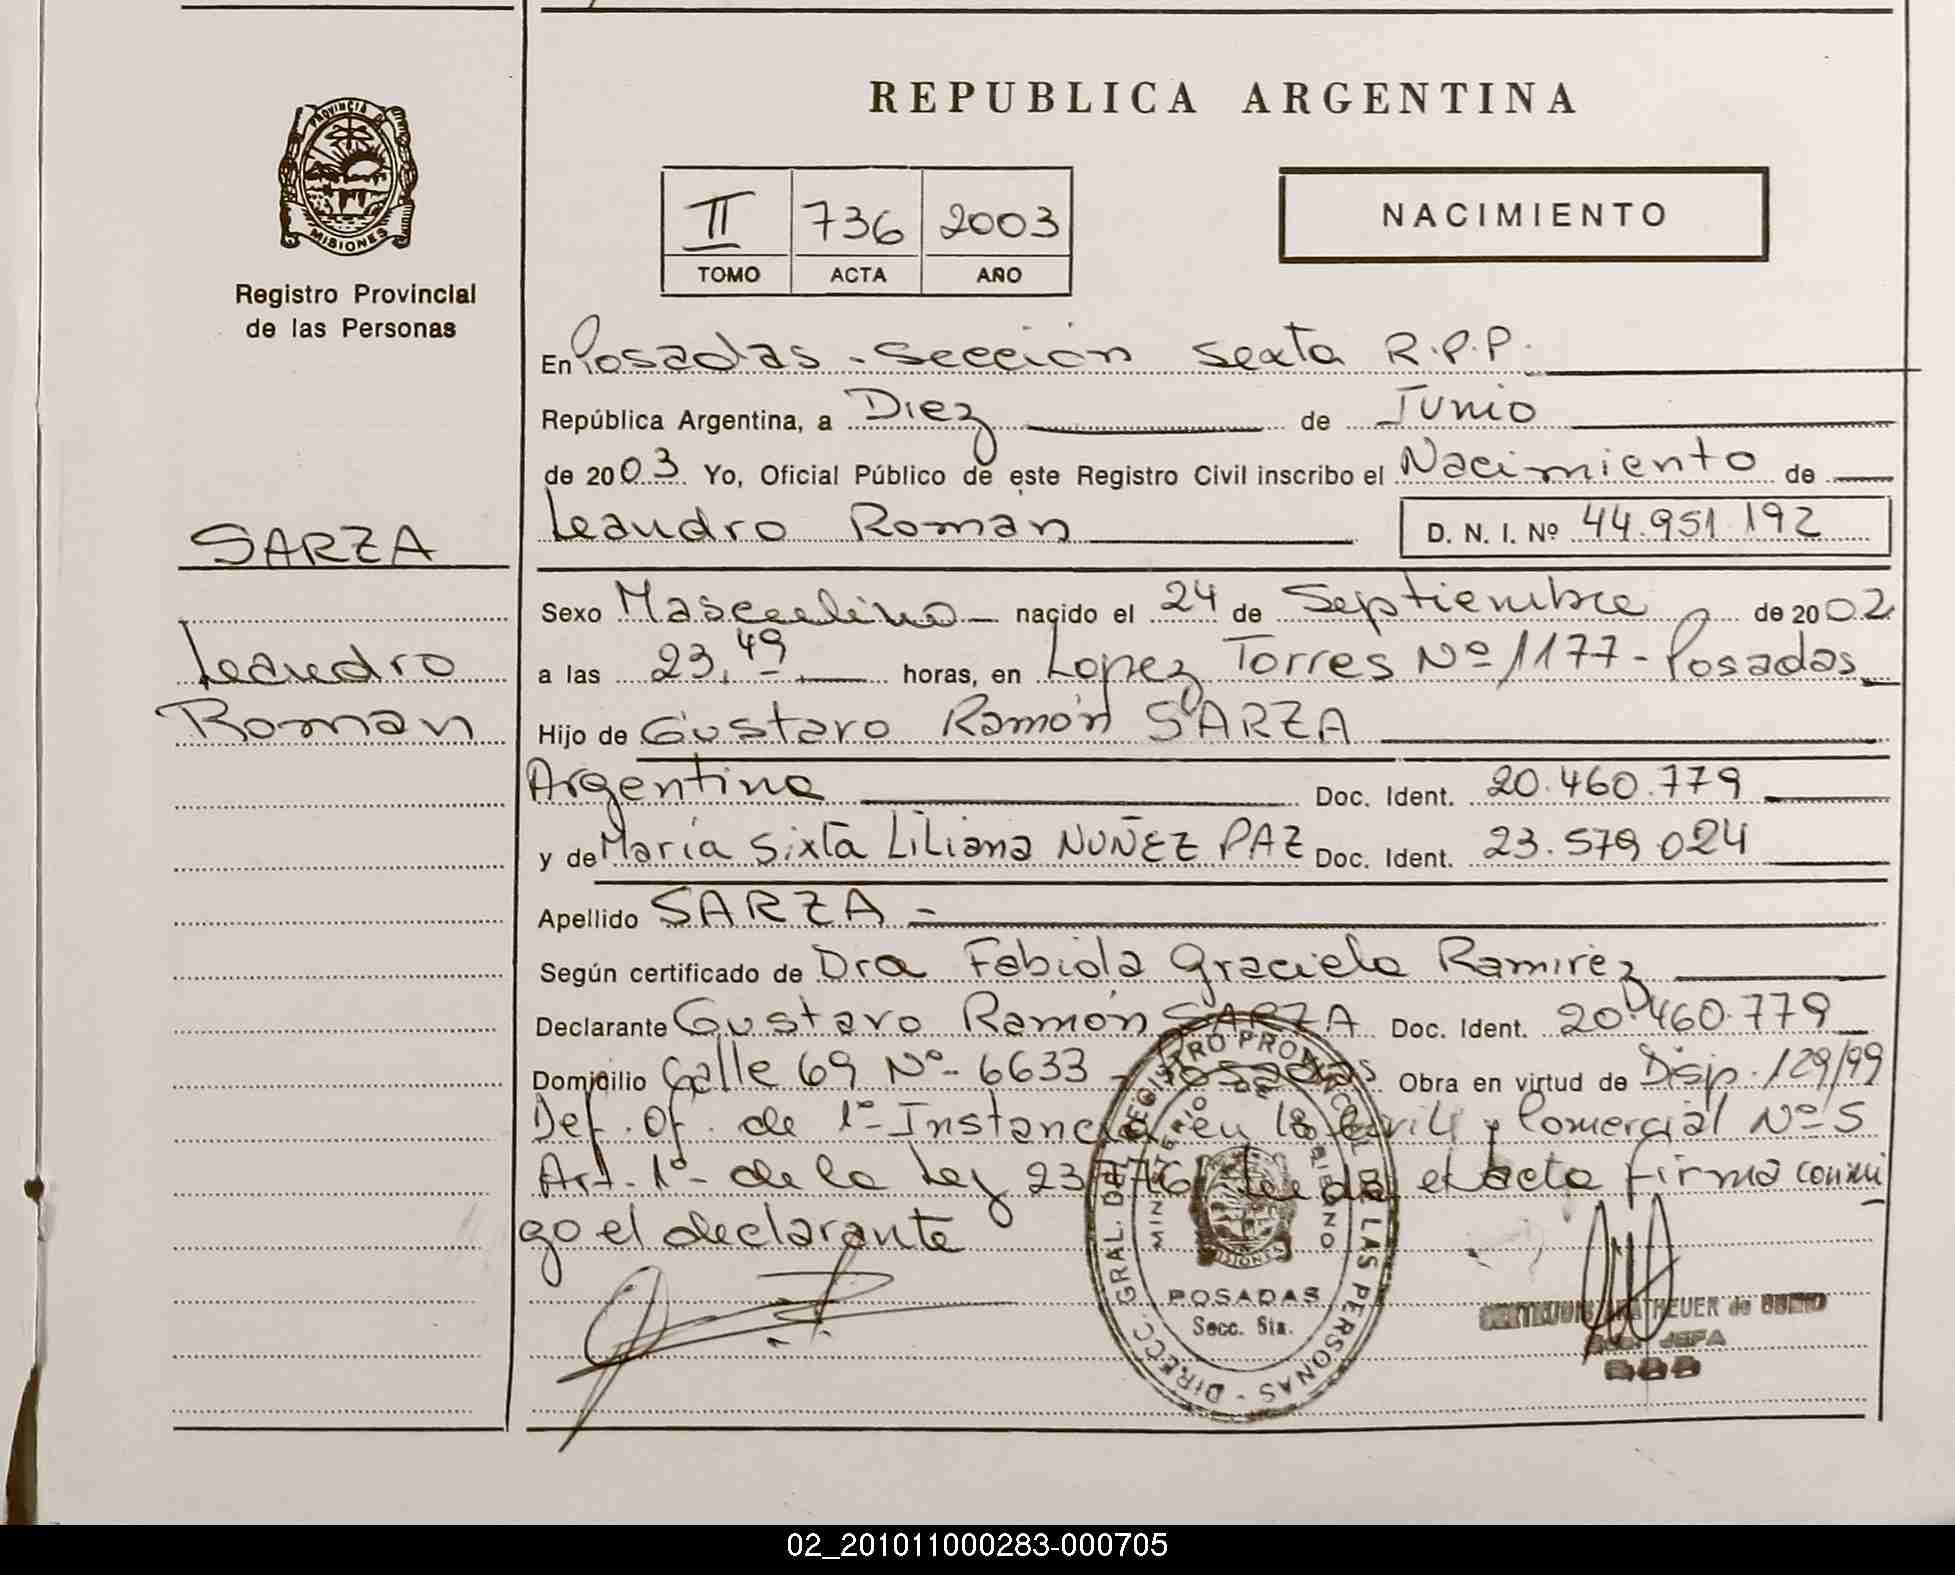 REPUBLICA ARGENTINA
PROVINCIA DE MISIONES
Registro Provincial
de las Personas
II 736 2003
TOMO ACTA AÑO
NACIMIENTO
En Posadas - Sección Sexta R.P.P.
República Argentina, a Diez de Junio
de 2003 Yo, Oficial Público de este Registro Civil inscribo el Nacimiento de
Leandro Roman D. N. I. Nº 44.951.192
SARZA
Leandro
Roman
Sexo Masculino nacido el 24 de Septiembre de 2002
a las 23,49 horas, en Lopez Torres Nº 1177 - Posadas
Hijo de Gustavo Ramón SARZA
Argentina Doc. Ident. 20.460.779
y de María Sixta Liliana NUÑEZ PAZ Doc. Ident. 23.579.024
Apellido SARZA -
Según certificado de Dra Fabiola Graciela Ramirez
Declarante Gustavo Ramón SARZA Doc. Ident. 20.460.779
Domicilio Calle 69 Nº 6633 - Posadas Obra en virtud de Disp. 129/99
Def. Of. de 1º Instancia en lo Civil y Comercial Nº 5
Art. 1º de la Ley 23776 Leida el acta firma conmi
go el declarante
DIRECC. GRAL. DEL REGISTRO PROVINCIAL DE LAS PERSONAS
MINISTERIO DE GOBIERNO
MISIONES
POSADAS
Secc. 6ta.
JEFA
02_201011000283-000705